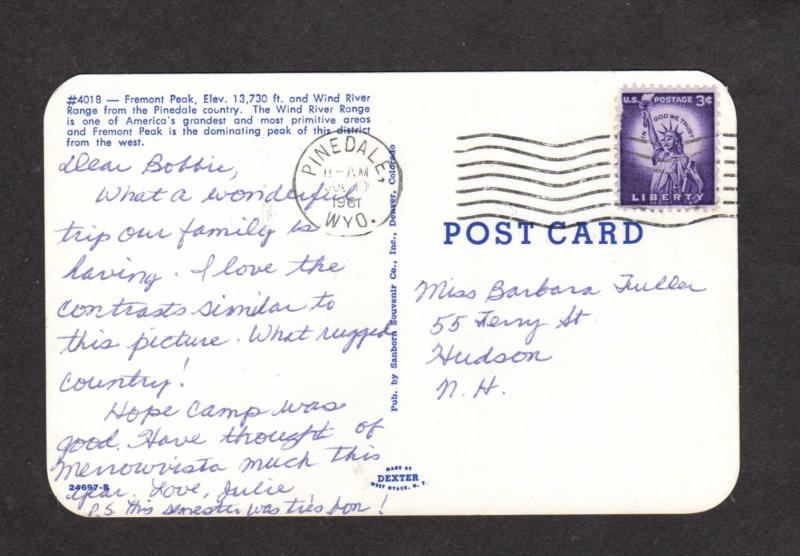 #4018 — Fremont Peak, Elev. 13,730 ft. and Wind River
Range from the Pinedale country. The Wind River Range
is one of America's grandest and most primitive areas
and Fremont Peak is the dominating peak of this district
from the west.
Dear Bobbie,
What a wonderful
trip our family is
having. I love the
contrasts similar to
this picture. What rugged
country!
Hope Camp was
good. Have thought of
Merrowvista much this
year. Love, Julie
P.S. This semester was très bon!
24697-B
Pub. by Sanborn Souvenir Co., Inc., Denver, Colorado
MADE BY
DEXTER
WEST NYACK, N. Y.
PINEDALE,
11-AM
1961
WYO.
U.S. POSTAGE 3¢
IN GOD WE TRUST
LIBERTY
POST CARD
Miss Barbara Fuller
55 Ferry St
Hudson
N. H.